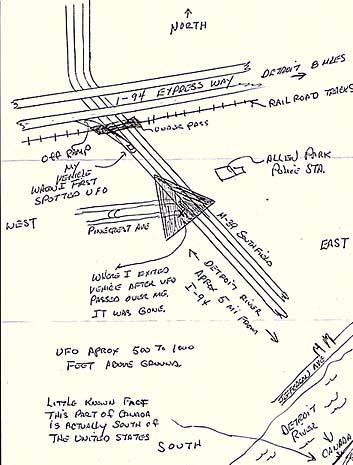 NORTH
DETROIT 8 MILES
I-94 EXPRESS WAY
RAILROAD TRACKS
UNDER PASS
OFF RAMP
MY
VEHICLE
WHEN I FIRST
SPOTTED UFO
ALLEN PARK
POLICE STA.
WEST
PINECREST AVE
M-39 SOUTHFIELD
EAST
WHERE I EXITED
VEHICLE AFTER UFO
PASSED OVER ME.
IT WAS GONE.
DETROIT RIVER
APROX 5 MI FROM
I-94
UFO APROX 500 TO 1000
FEET ABOVE GROUND
JEFFERSON AVE
LITTLE KNOWN FACT
THIS PART OF CANADA
IS ACTUALLY SOUTH OF
THE UNITED STATES
DETROIT
RIVER
CANADA
SOUTH